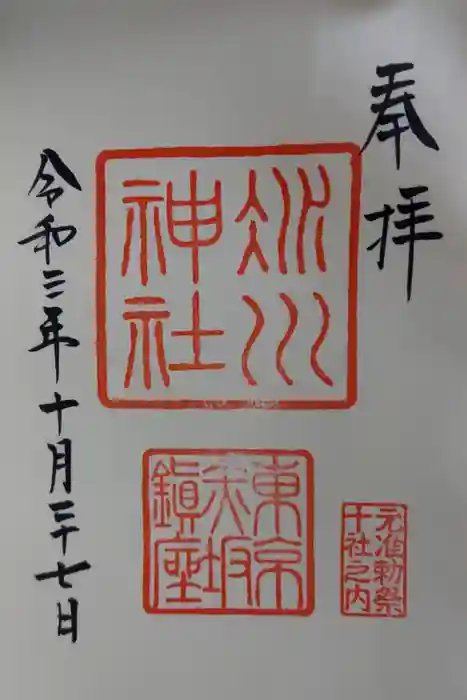 奉拝
氷川
神社
東京
赤坂
鎭座
元准勅祭
十社之内
令和三年十月二十七日